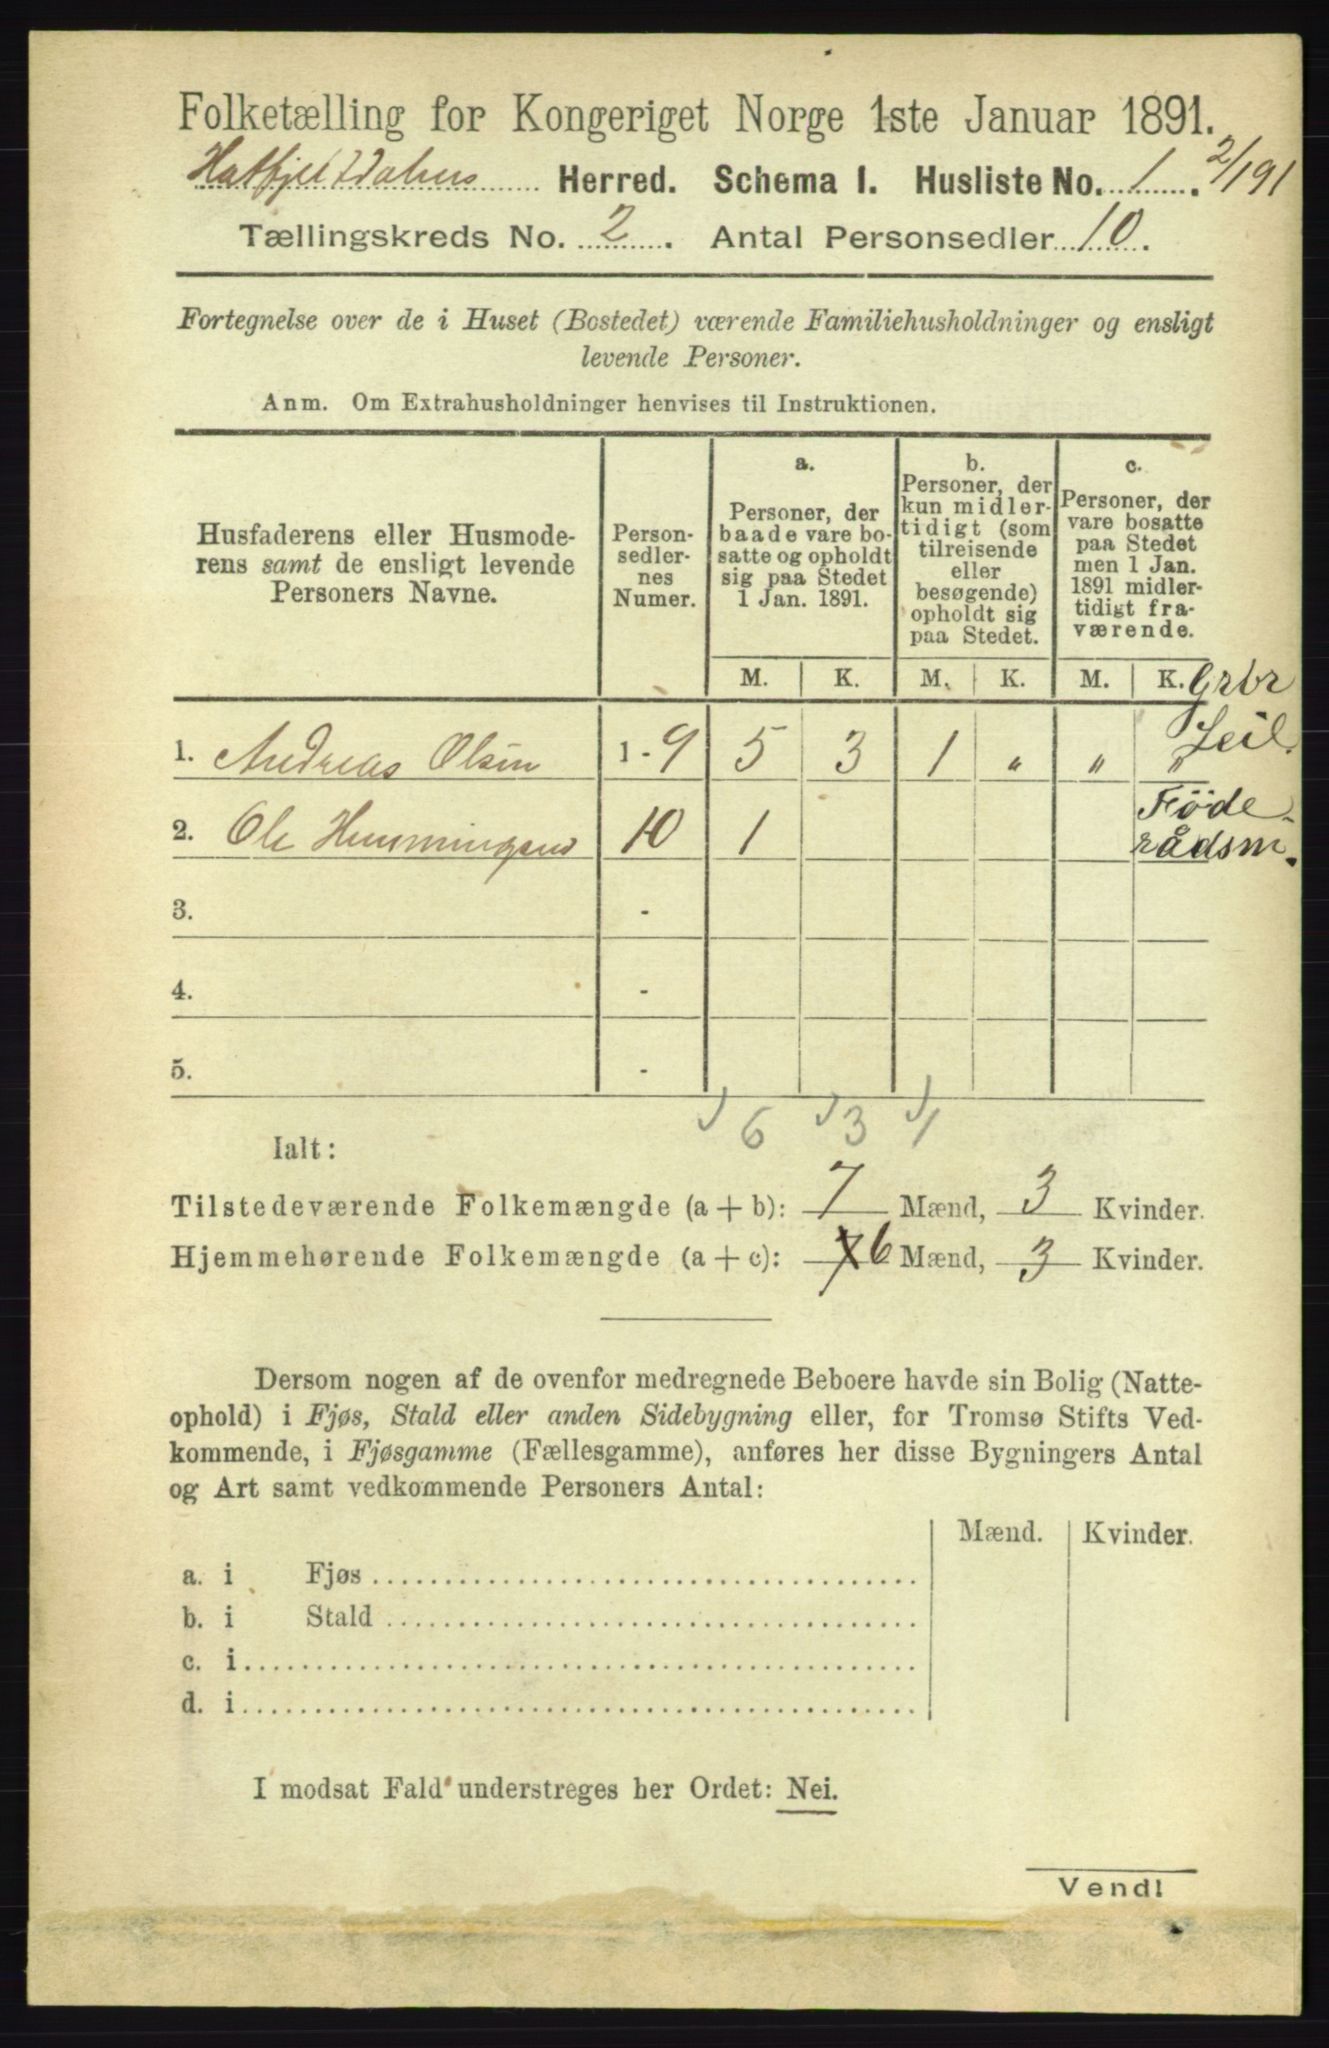 Folketælling for Kongeriget Norge 1ste Januar 1891.
Hatfjelddalens Herred. Schema I. Husliste No. 1. 2/191
Tællingskreds No. 2. Antal Personsedler 10.
Fortegnelse over de i Huset (Bostedet) værende Familiehusholdninger og ensligt
levende Personer.
Anm. Om Extrahusholdninger henvises til Instruktionen.
Husfaderens eller Husmode-
rens samt de ensligt levende
Personers Navne.
Person-
sedler-
nes
Numer.
a.
Personer, der
baade vare bo-
satte og opholdt
sig paa Stedet
1 Jan. 1891.
b.
Personer, der
kun midler-
tidigt (som
tilreisende
eller
besøgende)
opholdt sig
paa Stedet.
c.
Personer, der
vare bosatte
paa Stedet
men 1 Jan.
1891 midler-
tidigt fra-
værende.
M. K. M. K. M. K. Grbr
1. Andreas Olsen 1-9 5 3 1 " " " Leil.
2. Ole Hemmingsen 10 1 Föde-
rådsm.
3. -
4. -
5. -
6 3 1
Ialt:
Tilstedeværende Folkemængde (a + b): 7 Mænd, 3 Kvinder.
Hjemmehørende Folkemængde (a + c): 7 6 Mænd, 3 Kvinder.
Dersom nogen af de ovenfor medregnede Beboere havde sin Bolig (Natte-
ophold) i Fjøs, Stald eller anden Sidebygning eller, for Tromsø Stifts Ved-
kommende, i Fjøsgamme (Fællesgamme), anføres her disse Bygningers Antal
og Art samt vedkommende Personers Antal:
Mænd. Kvinder.
a. i Fjøs
b. i Stald
c. i
d. i
I modsat Fald understreges her Ordet: Nei.
Vend!